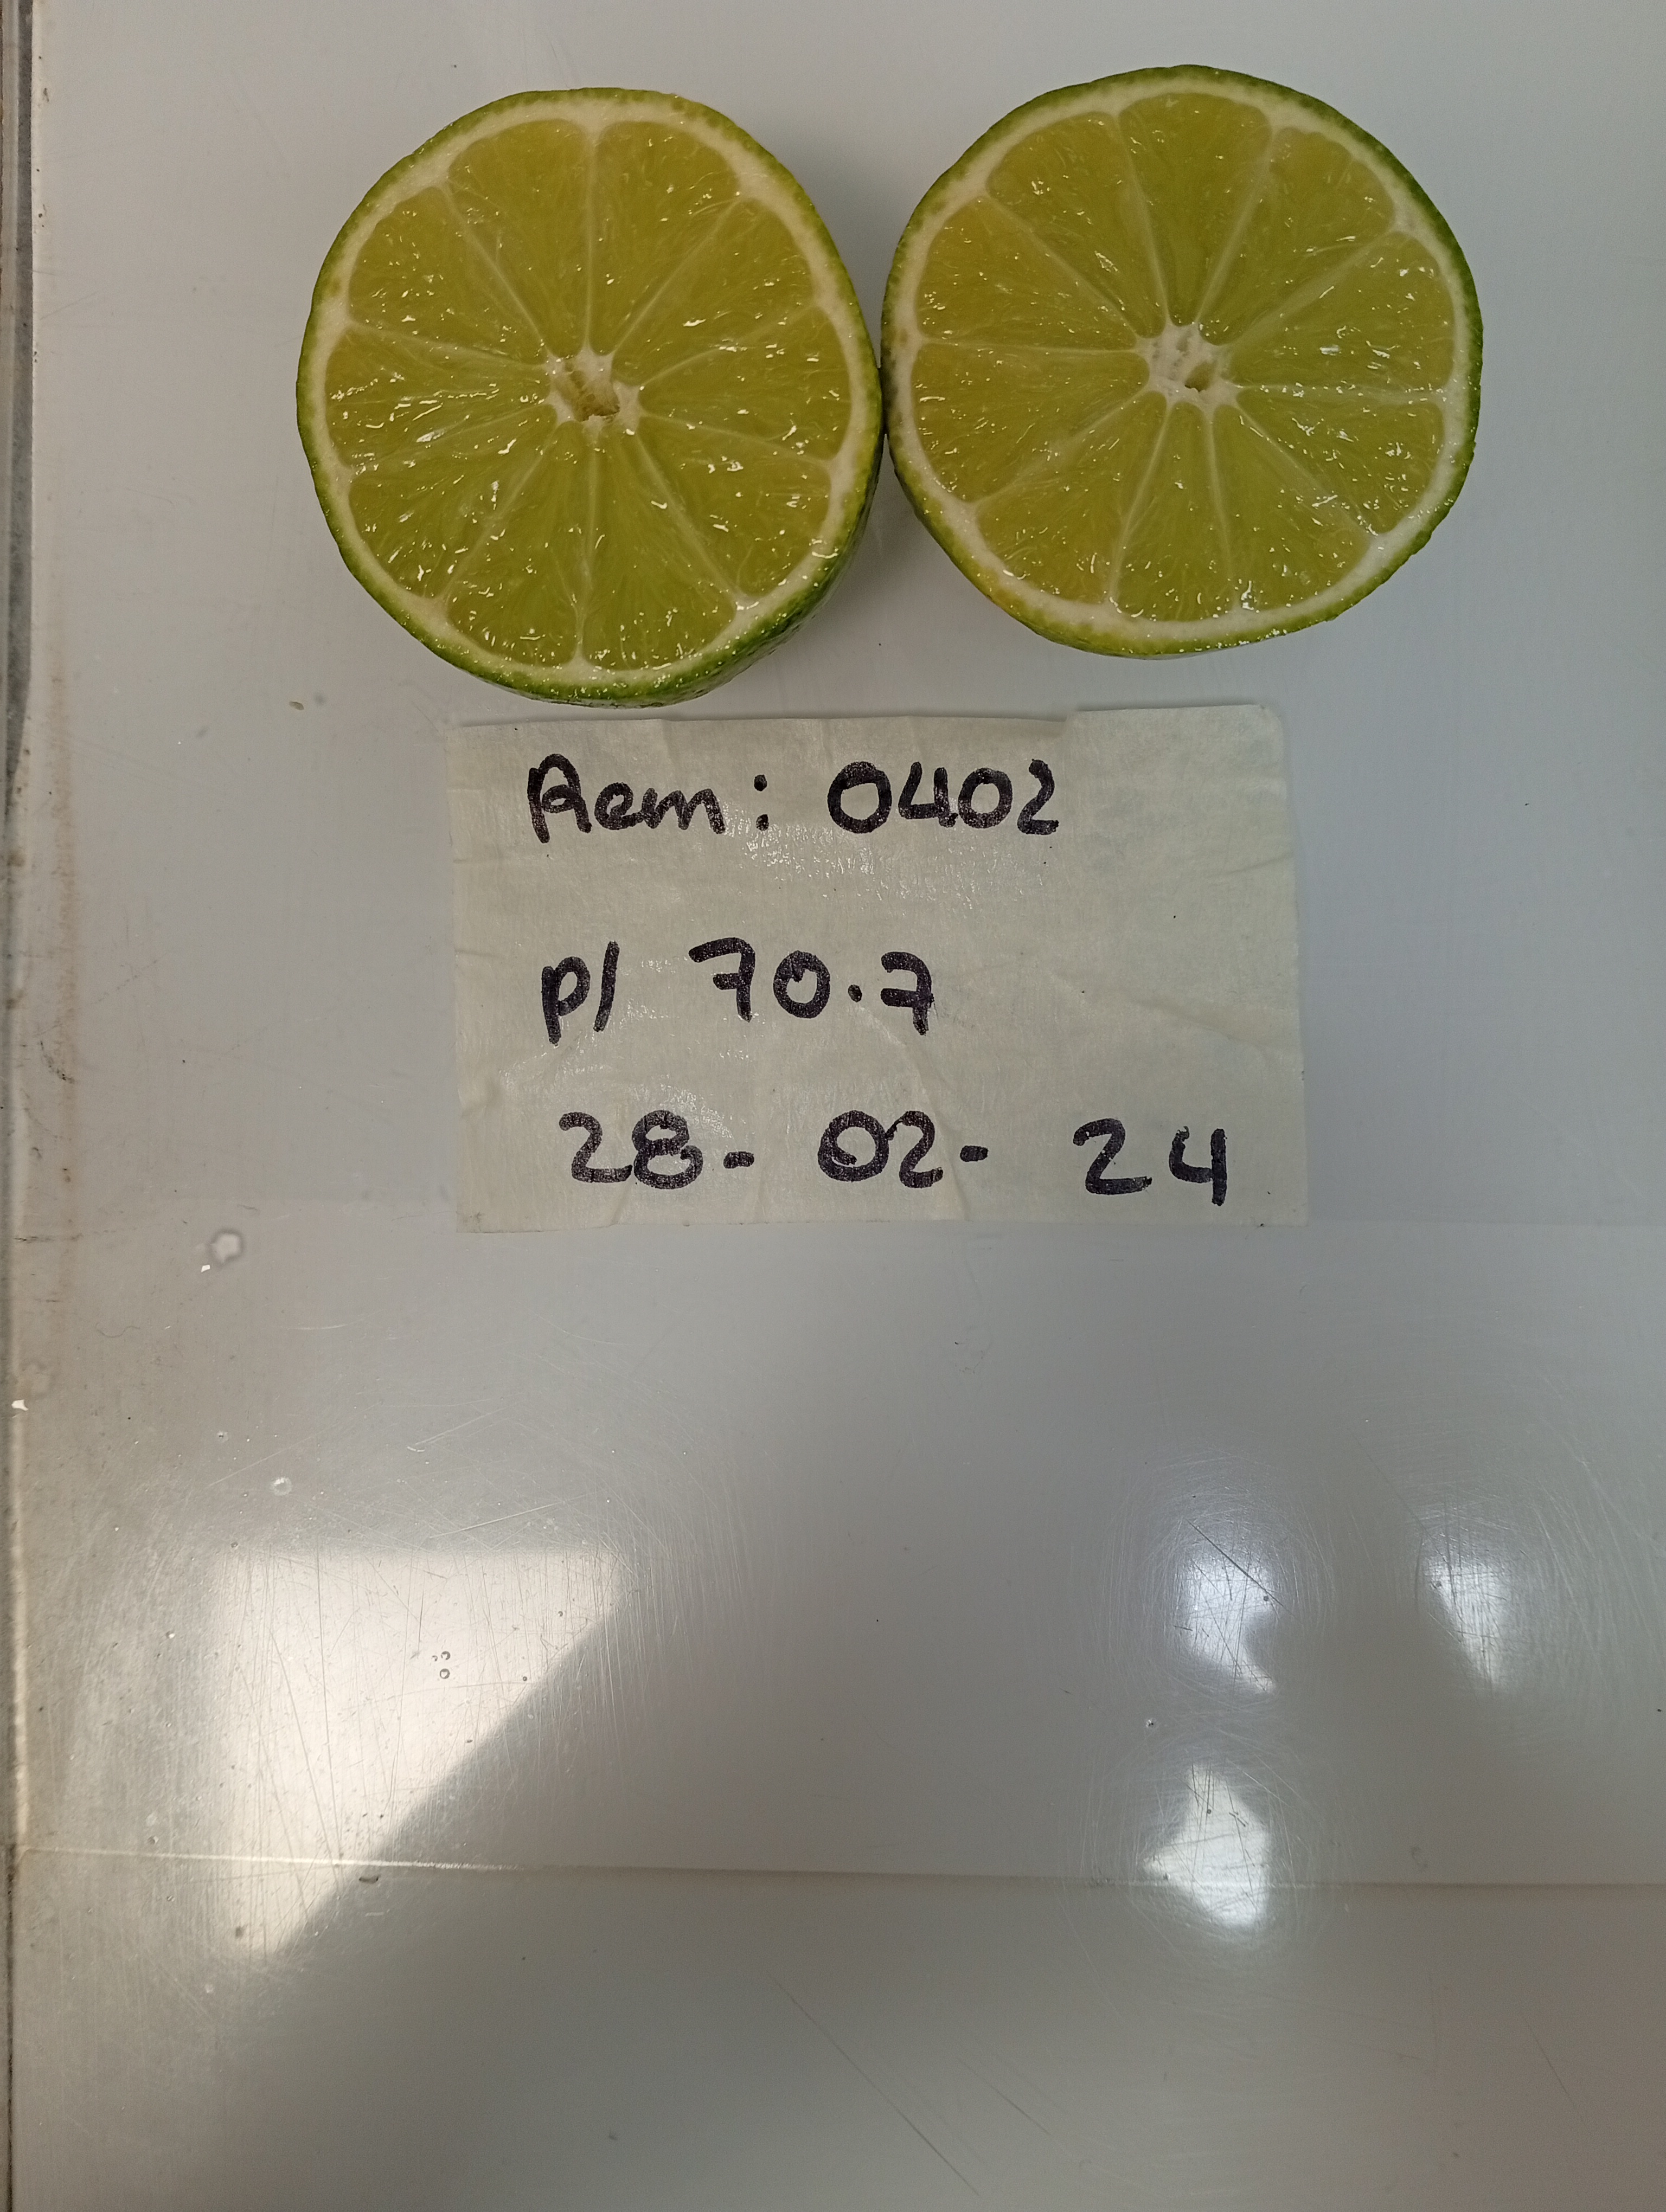 Rem: 0402
p/ 70.7
28-02-24